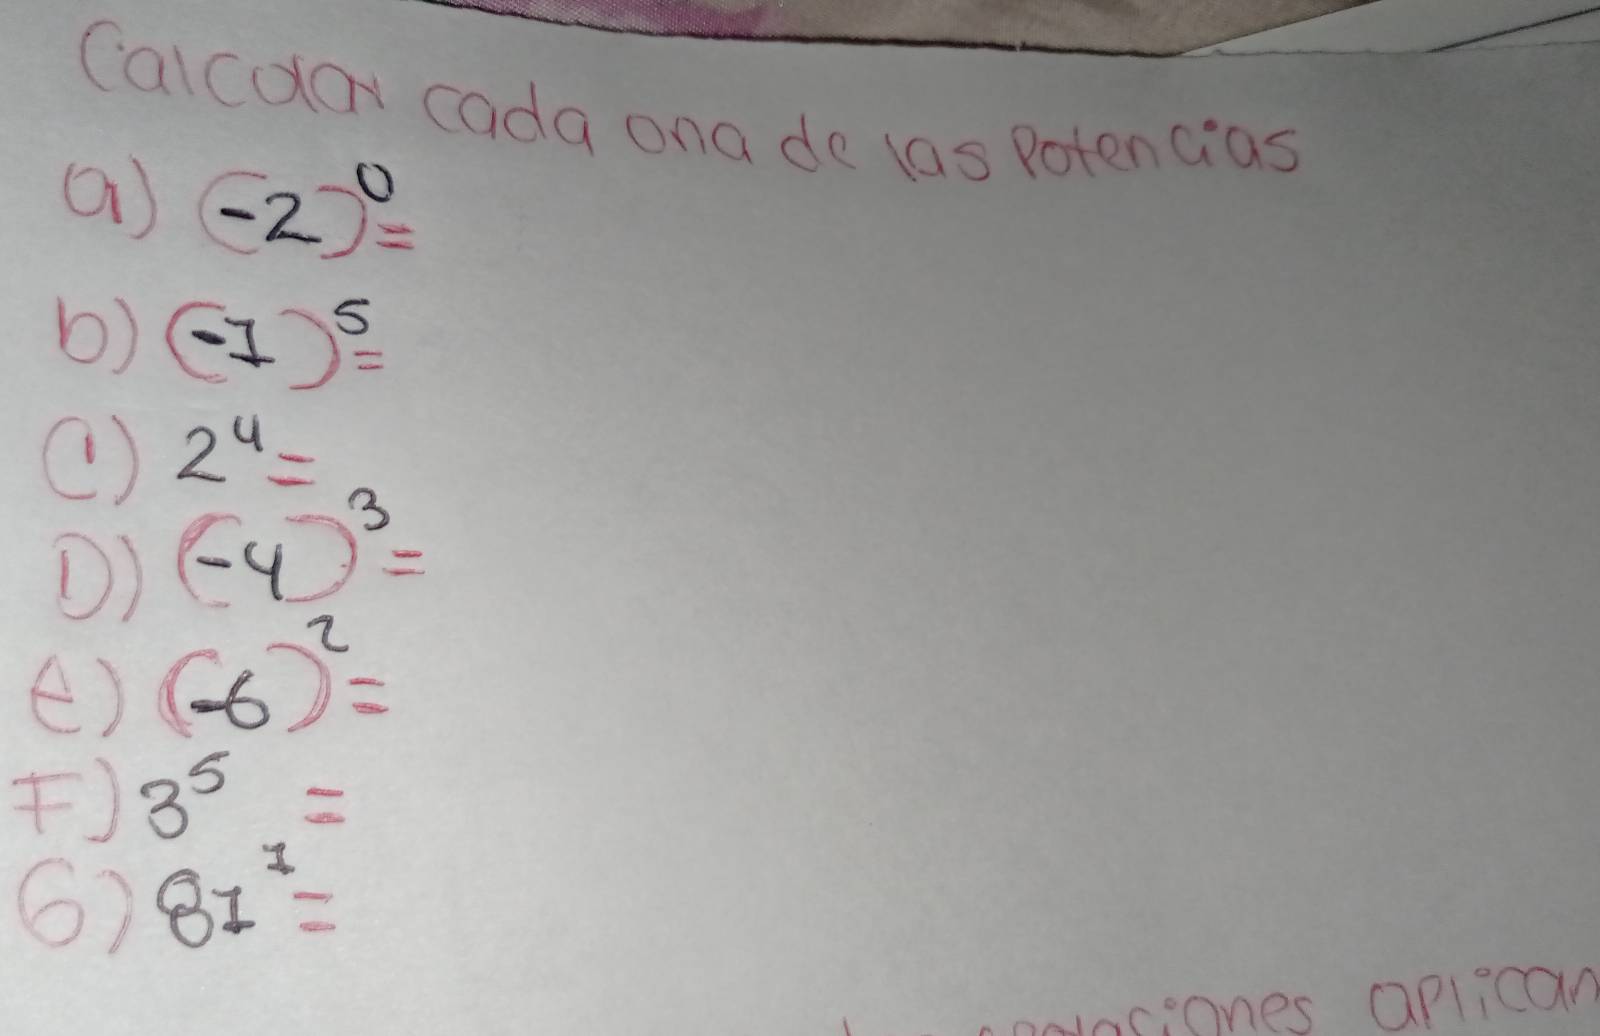 Calcular cada una de las Potencias
a) (-2)⁰=
b) (-1)⁵=
C) 2⁴=
D) (-4)³=
e) (-6)²=
F) 3⁵ =
G) 81¹=
aplican